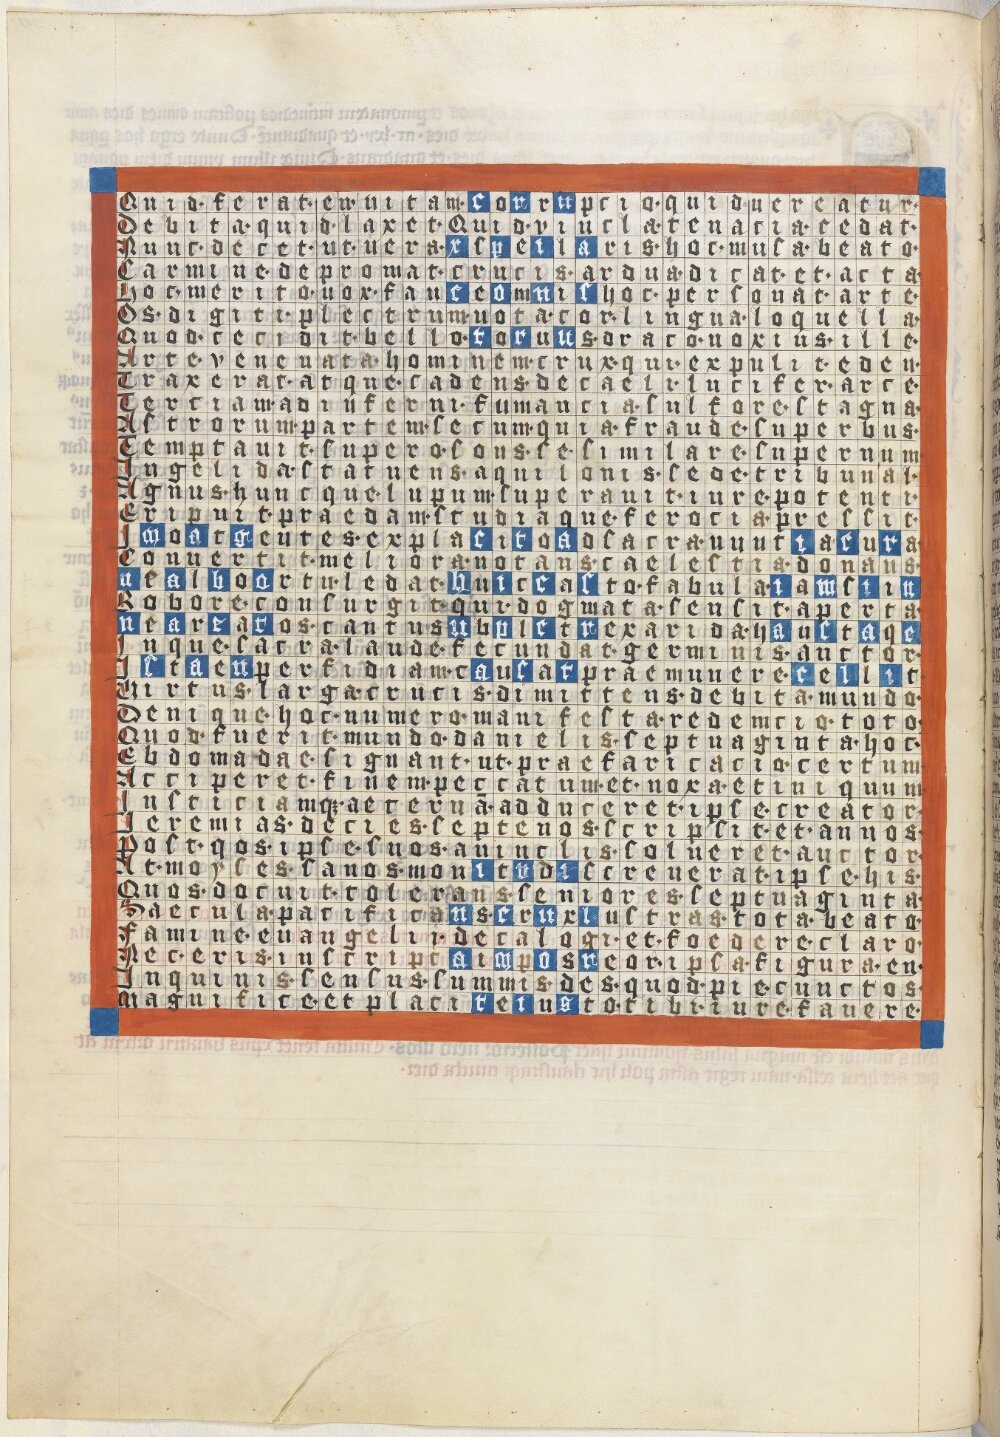 Quid·ferat·en·uitam·corrupcio·quid·uereatur·
Debita·quid·laxet·Quid·vincla·tenacia·cedat·
Nunc·decet·ut·uera·xps·eilaris·hoc·musa·beato·
Carmine·depromat·crucis·ardua·dicat·et·acta
hoc·merito·uox·fauce·omnis·hoc·personat·arte·
Os·digiti·plectrum·uota·cor·lingua·loquella·
Quod·cecidit·bello·toruus·draco·noxius·ille·
Arte·venenata·hominem·crux·qui·expulit·eden·
Traxerat·atque·cadens·de·caeli·lucifer·arce·
Terciam·ad inferni·fumancia·sulfore·stagna·
Astrorum·partem·secum·quia·fraude·superbus·
Temptauit·supero·sons·se·similare·supernum
In·gelida·statuens·aquilonis·sede·tribunal·
Agnus·hunc·que·lupum·superauit·iure·potenti·
Eripuit·praedam·studiaque·ferocia·pressit·
Conuertit·meliora·notans·caelestia·donans·
Robore·consurgit·qui·dogmata·sensit·aperta·
Inque·sacra·laude·fecundat·germinis·auctor·
Ista en perfidiam·causat·praemunere·cellit·
Virtus·larga·crucis·dimittens·debita·mundo·
Denique·hoc·numero·manifesta·redemcio·toto
Quod·fuerit·mundo·danielis·septuaginta·hoc·
Ebdomadae·signant·ut·praefaricacio·certum·
Acciperet·finem·peccatum·et·noxa·et iniquum
Iusticiamq; aeternā·adduceret·ipse·creator·
Ieremias·decies·septenos·scripsit·et·annos·
Post·qos·ipse·suos·a uinclis·solueret·auctor·
At·moyses·sanos·monitv discreuerat·ipse·his·
Quos·docuit·tolerans·seniores·septuaginta·
Saecula·pacificans crux lustras tota·beato·
Famine·euangelii·decalogi·et·foedere·claro·
Nec·eris·inscripta impos reor·ipsa·figura·en·
Inquinis·sensus·summis·des·quod·pie·cunctos·
Magnifice et placite ius toti bi·iure·fauere·